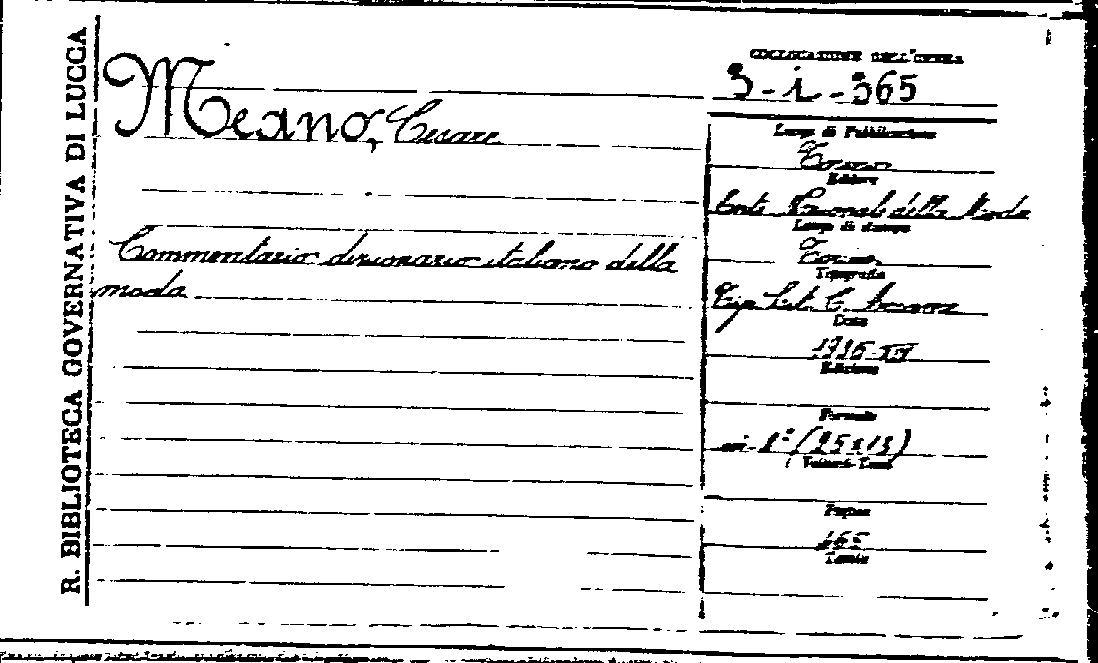 R. BIBLIOTECA GOVERNATIVA DI LUCCA
Meano, Cesare
Commentario dizionario italiano della
moda
COLLOCAZIONE DELL'OPERA
3-1-365
Luogo di Pubblicazione
Torino
Editore
Ente Nazionale della Moda
Luogo di stampa
Torino
Tipografia
Tip. Lit. C.
Data
1936-XIV
Edizione
Formato
in-8° (25x18)
Volumi-Tomi
Pagine
465
Tavole